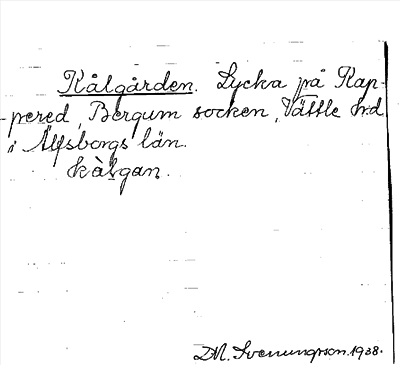 Kålgården. Lycka på Rap-
pered, Bergum socken, Vättle hd
i Älfsborgs län.
kàlgan.
D.M. Svenungsson. 1938.